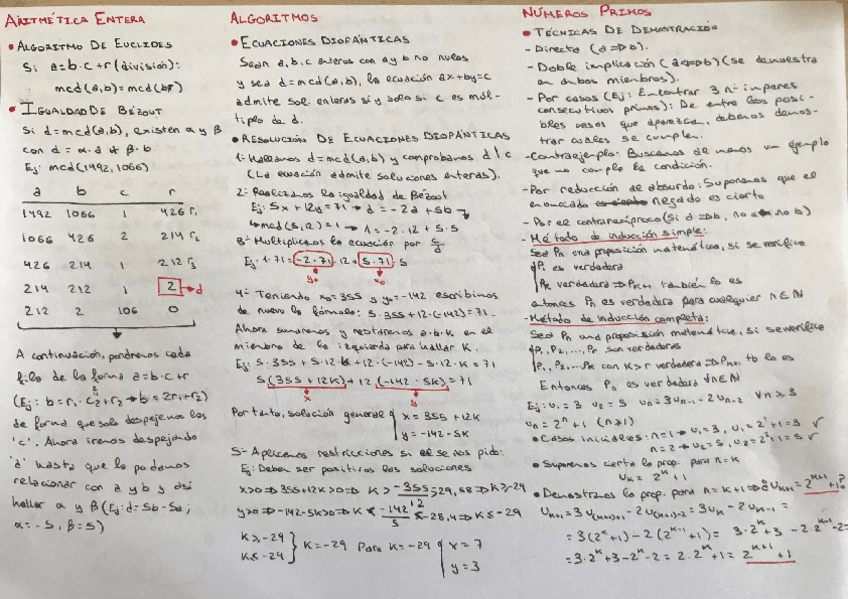 ARITMÉTICA ENTERA
• ALGORITMO DE EUCLIDES
Si a=b·c+r (división):
mcd(a,b)=mcd(b,r)
• IGUALDAD DE BÉZOUT
Si d=mcd(a,b), existen α y β
con d = α·a + β·b
Ej: mcd(1492,1066)
a b c r
1492 1066 1 426 r₁
1066 426 2 214 r₂
426 214 1 212 r₃
214 212 1 2 → d
212 2 106 0
A continuación, pondremos cada
fila de la forma a=b·c+r
(Ej: b=r₁·c₂+r₂ → b=2r₁+r₂)
de forma que solo despejemos las
'c'. Ahora iremos despejando
'd' hasta que lo podamos
relacionar con a y b y así
hallar α y β (Ej: d=5b-5a;
α=-5, β=5)
ALGORITMOS
• ECUACIONES DIOFÁNTICAS
Sean a,b,c enteros con a y b no nulos
y sea d=mcd(a,b), la ecuación ax+by=c
admite sol. enteras si y solo si c es múl-
tiplo de d.
• RESOLUCIÓN DE ECUACIONES DIOFÁNTICAS
1- Hallamos d=mcd(a,b) y comprobamos d|c
(La ecuación admite soluciones enteras).
2- Realizamos la igualdad de Bézout
Ej: 5x+12y=71 → d=-2a+5b
→ mcd(5,12)=1 → 1=-2·12+5·5
3- Multiplicamos la ecuación por c/d
Ej: 1·71=-2·71·12+5·71·5
y₀ x₀
4- Teniendo x₀=355 y y₀=-142 escribimos
de nuevo la fórmula: 5·355+12·(-142)=71.
Ahora sumaremos y restaremos a·b·k en el
miembro de la izquierda para hallar K.
Ej: 5·355+5·12·k+12·(-142)-5·12·K=71
5(355+12K)+12(-142-5K)=71
x y
Por tanto, solución general { x=355+12K
y=-142-5K
5- Aplicamos restricciones si el se nos pide:
Ej: Deben ser positivas las soluciones
x>0 ⇒ 355+12K>0 ⇒ K>-355/12=-29,58 ⇒ K≥-29
y>0 ⇒ -142-5K>0 ⇒ K<-142/5=-28,4 ⇒ K≤-29
K≥-29
K≤-29 } K=-29 Para K=-29 { x=7
y=3
NÚMEROS PRIMOS
• TÉCNICAS DE DEMOSTRACIÓN
- Directa (a⇒b).
- Doble implicación (a⇔b) (se demuestra
en ambos miembros).
- Por casos (Ej: Encontrar 3 nº impares
consecutivos primos): De entre los posi-
bles casos que aparezca, debemos demos-
trar cuales se cumplen.
- Contraejemplo: Buscamos al menos un ejemplo
que no cumple la condición.
- Por reducción de absurdo: Suponemos que el
enunciado negado es cierto
- Por el contrarrecíproco (Si a⇒b, no a ⇐ no b)
- Método de inducción simple:
Sea Pₙ una proposición matemática, si se verifica
{ P₁ es verdadera
Pₖ verdadera ⇒ Pₖ₊₁ también lo es
entonces Pₙ es verdadera para cualquier n∈ℕ
- Método de inducción completa:
Sea Pₙ una proposición matemática, si se verifica
{ P₁, P₂,..., Pᵣ son verdaderas
P₁, P₂,..., Pₖ con K>r verdadera ⇒ Pₖ₊₁ tb lo es
Entonces Pₙ es verdadera ∀n∈ℕ
Ej: u₁=3 u₂=5 uₙ=3uₙ₋₁-2uₙ₋₂ ∀n≥3
uₙ=2ⁿ+1 (n≥1)
• Casos iniciales: n=1→u₁=3, u₁=2¹+1=3 √
n=2→u₂=5, u₂=2²+1=5 √
• Suponemos cierta la prop. para n=K
uₖ=2ᵏ+1
• Demostramos la prop. para n=K+1 ⇒ ¿uₖ₊₁=2ᵏ⁺¹+1?
uₖ₊₁=3u₍ₖ₊₁₎₋₁-2u₍ₖ₊₁₎₋₂=3uₖ-2uₖ₋₁=
=3(2ᵏ+1)-2(2ᵏ⁻¹+1)=3·2ᵏ+3-2·2ᵏ⁻¹-2=
=3·2ᵏ+3-2ᵏ-2=2·2ᵏ+1=2ᵏ⁺¹+1